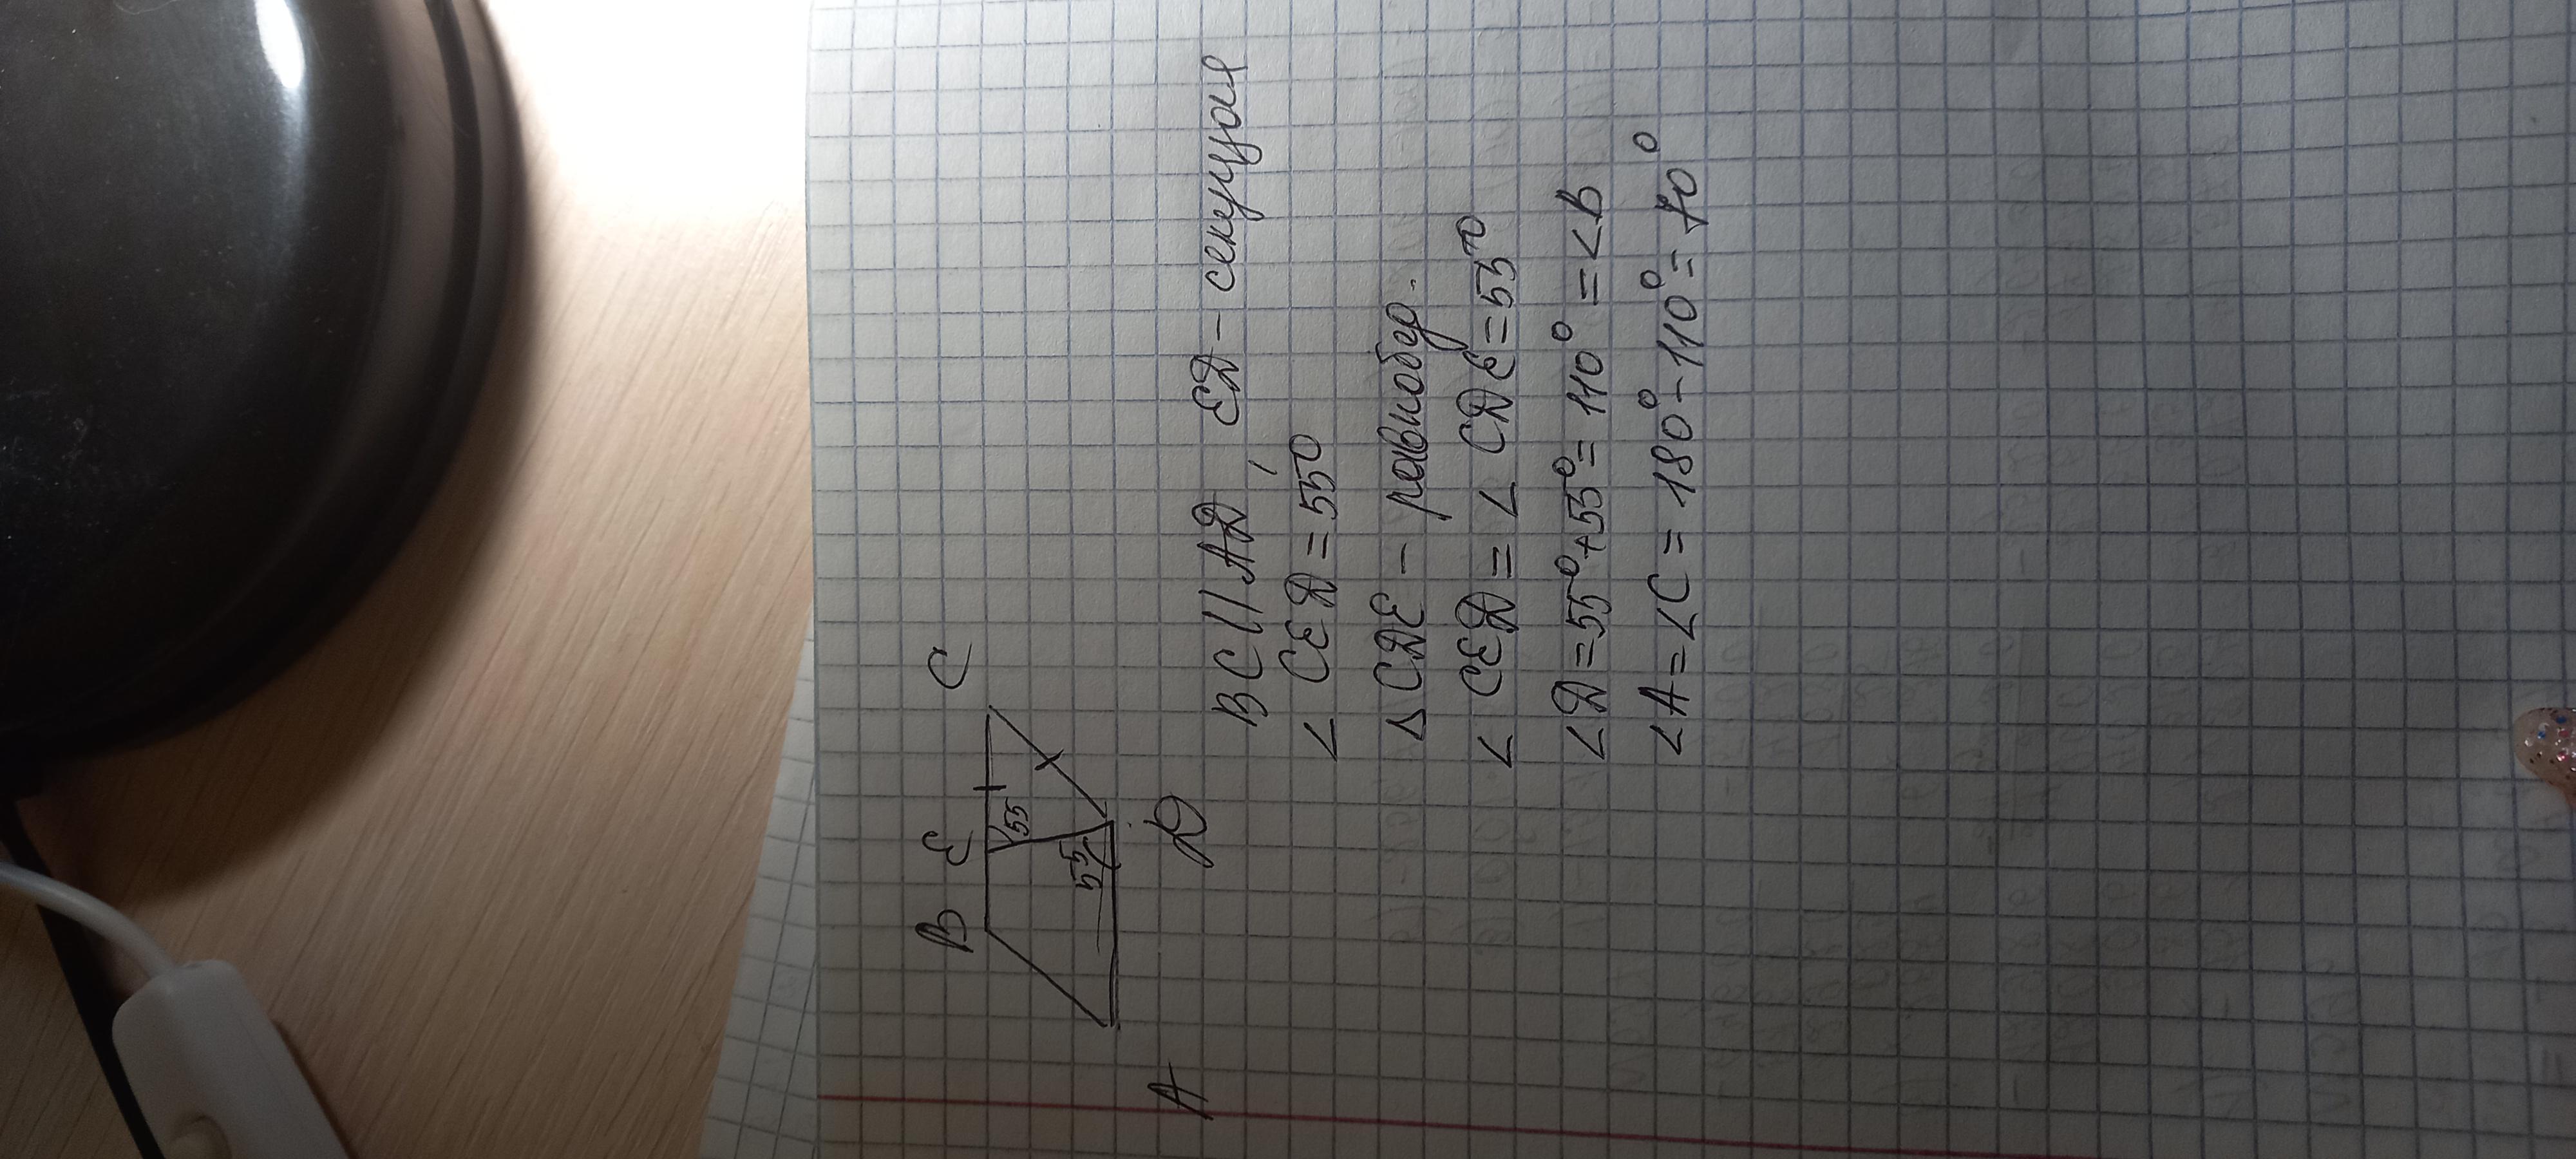 B E C
55
55
A D
BC || AD, ED - секущая
∠ CED = 55°
Δ CDE - равнобед.
∠ CED = ∠ CDE = 55°
∠D = 55° + 55° = 110° = ∠B
∠A = ∠C = 180° - 110° = 70°